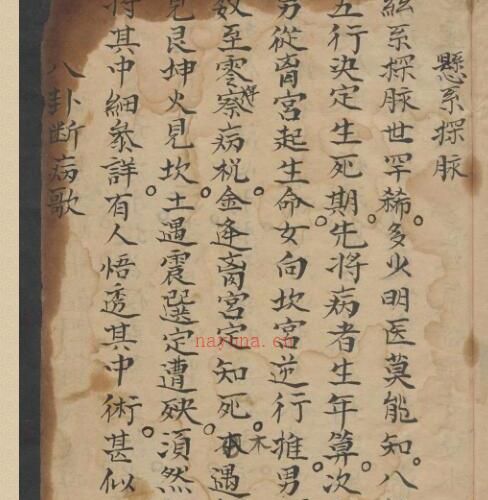 懸系探脉
絲系探脉世罕稀多少明医莫能知八
五行決定生死期先將病者生年算次
男從离宮起生命女向坎宮逆行推男
数至零察病机金逢离宮定知死木遇
見艮坤火見坎土遇震巽定遭殃須然
将其中細參詳有人悟透其中術甚似
八卦断病歌
nayona.cn